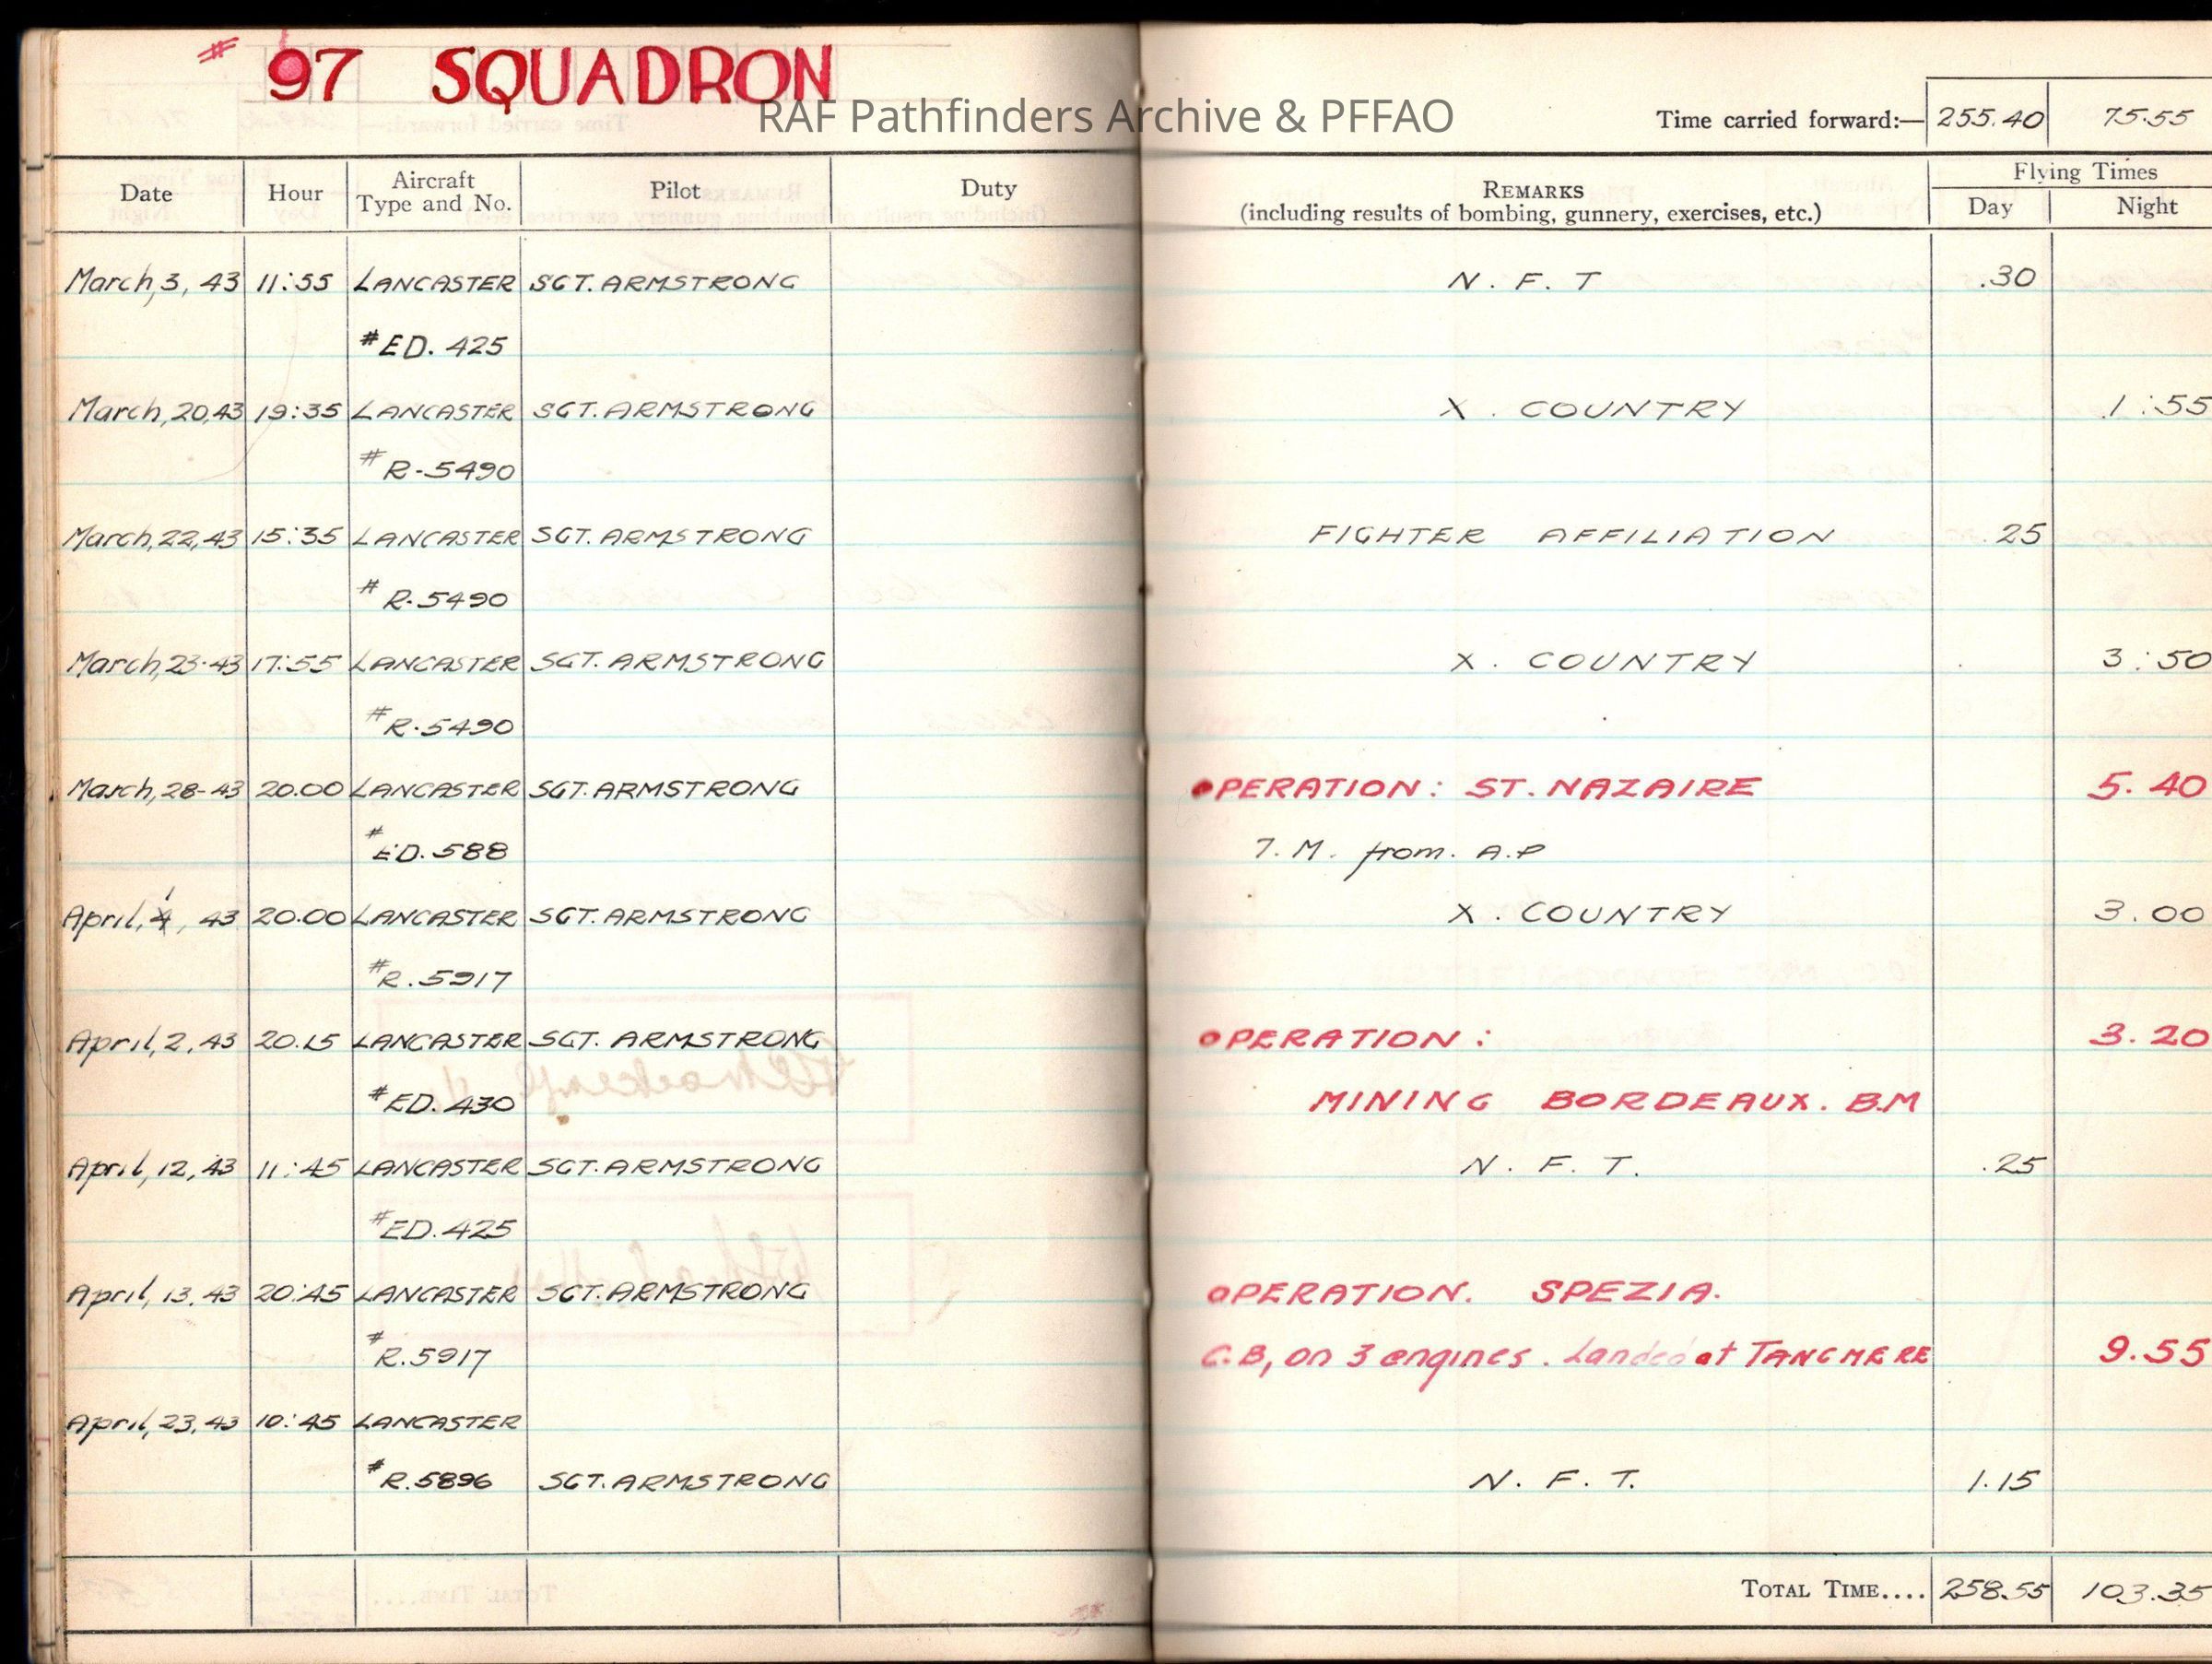 # 97 SQUADRON
RAF Pathfinders Archive & PFFAO
Time carried forward:— 255.40 75.55
Date Hour Aircraft Type and No. Pilot Duty REMARKS (including results of bombing, gunnery, exercises, etc.) Flying Times Day Night
March, 3, 43 11:55 LANCASTER SGT. ARMSTRONG N. F. T .30
#ED. 425
March, 20, 43 19:35 LANCASTER SGT. ARMSTRONG X. COUNTRY 1:55
#R-5490
March, 22, 43 15:35 LANCASTER SGT. ARMSTRONG FIGHTER AFFILIATION .25
#R-5490
March, 23-43 17:55 LANCASTER SGT. ARMSTRONG X. COUNTRY 3:50
#R-5490
March, 28-43 20.00 LANCASTER SGT. ARMSTRONG OPERATION: ST. NAZAIRE 5.40
#ED. 588 7. M. from. A.P
April, 1, 43 20.00 LANCASTER SGT. ARMSTRONG X. COUNTRY 3.00
#R. 5917
April, 2, 43 20.15 LANCASTER SGT. ARMSTRONG OPERATION: 3.20
#ED. 430 MINING BORDEAUX. B.M
April, 12, 43 11:45 LANCASTER SGT. ARMSTRONG N. F. T. .25
#ED. 425
April, 13, 43 20:45 LANCASTER SGT. ARMSTRONG OPERATION. SPEZIA.
#R. 5917 C.B, on 3 engines. Landed at TANGMERE 9.55
April, 23, 43 10:45 LANCASTER
#R. 5896 SGT. ARMSTRONG N. F. T. 1.15
TOTAL TIME.... 258.55 103.35